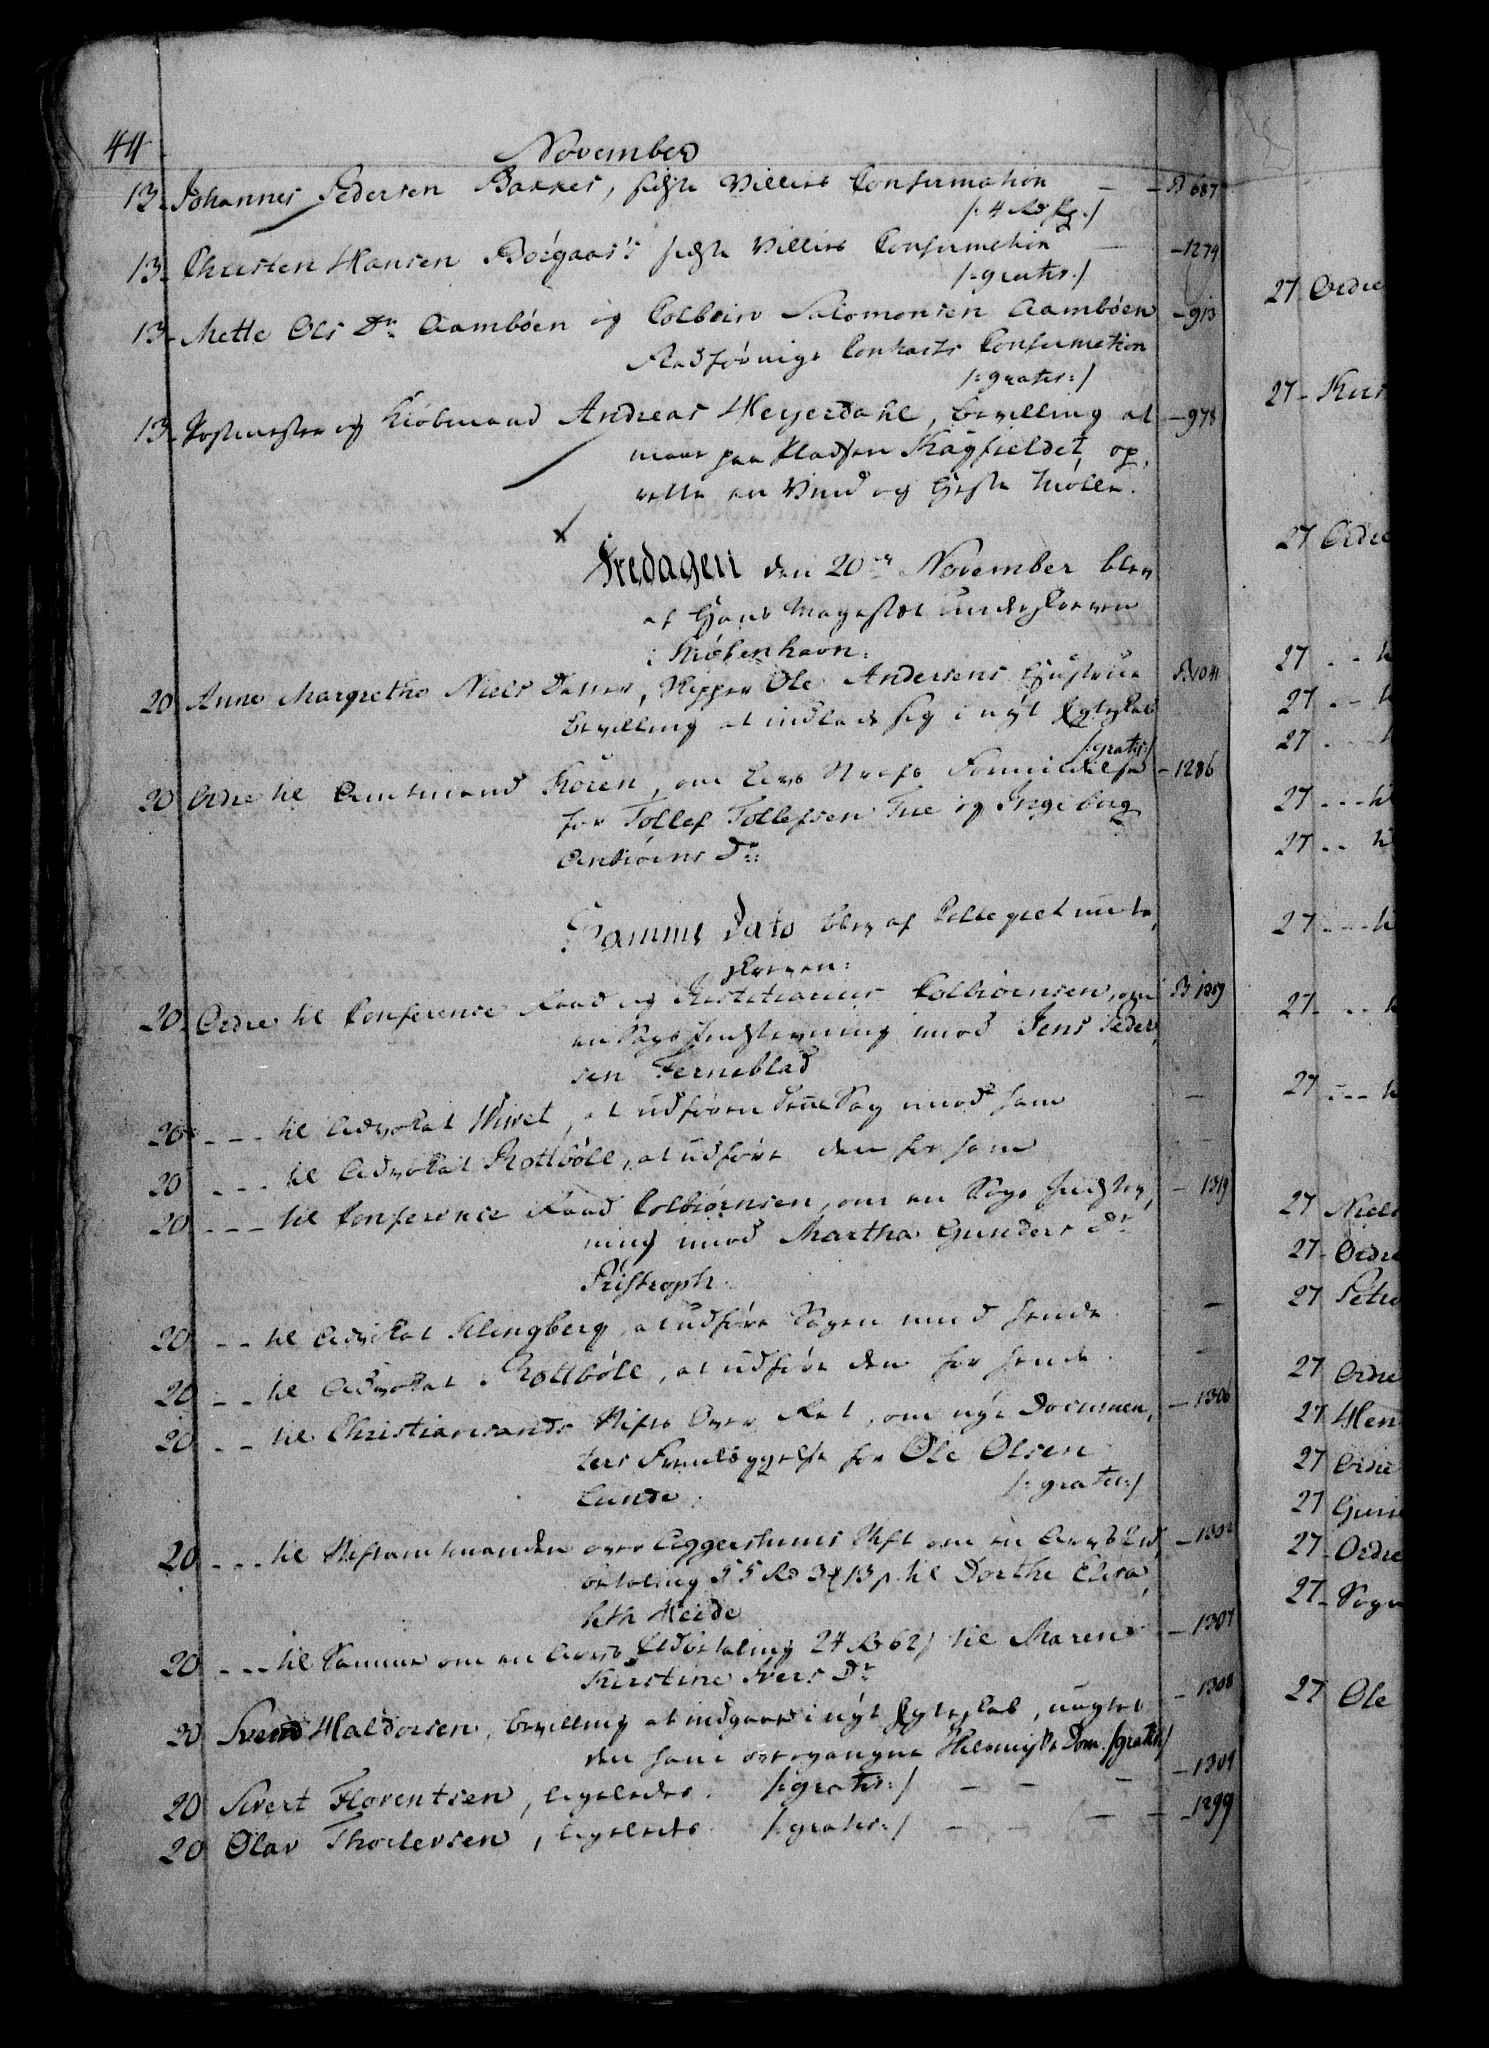 44
November
13. Johannes Pedersen Bakkes, sidste Villies Confirmation — — B 687
/: 4 Rd sp:/
13. Christen Hansen Borgaas's sidste Villies Confirmation — — 1274
/:gratis:/
13. Mette Ols Dr. Aambøen og Colbein Salomonsen Aambøen — 913
Contracts Confirmation
/:gratis:/
13. Postmester og Kiöbmand Andreas Heyerdahl, bevilling at — 978
maae paa Pladsen Skagfieldet op,
rette en Vind og Heste Mölle.
Fredagen den 20de November blev
af Hans Mayestæt underskreven
Kiöbenhavn:
20. Anne Margrethe Niels Datter, Skipper Ole Andersens Hustrue B 1041
bevilling at indlade sig i nyt Egteskab
/:gratis:/
20 Ordre til Amtmand Koren, om Livs Straffs Formildelse — 1286
for Tollef Tollefsen Tue og Ingeborg
Anbiörns Dr.
Samme Dato blev af Collegiet under,
skreven:
20. Ordre til Conference Raad og Justitiarius Colbiörnsen, om B 1259
en Sags Indstevning imod Jens Peder,
sen Ferneblad
20 - - - til Advokat Wivet, at udføre denne Sag imod ham —
20 - - - til Advokat Rottböll, at udføre den for ham
20 - - - til Conference Raad Colbiörnsen, om en Sags Indstev, — 1319
ning imod Martha Gunders Dr.
Ristroph.
20 - - til Advokat Klingberg, at udføre Sagen imod hende —
20 - - til Advokat Rottböll, at udføre den for hende —
20 - - til Christiansands Stifts Over Ret, om nye Documen, — 1306
ters Fremlæggelse for Ole Olsen
Lunde. /:gratis:/
20 - - - til Stiftamtmanden over Aggershuus Stift om en Arvs Ud, — 1302
betaling 55 Rd 3 13 s. til Dorthe Elisa,
beth Heide
20 - - - til Samme om en Arvs Udbetaling 24 Rd 62 s til Maren — 1307
Kirstine Ivers Dr.
20 Svend Haldorsen, bevilling at indgaae i nyt Egteskab, uagtet — 1308
den ham overgangne Dom. /:gratis:/
20 Sivert Florentsen, ligeledes. /:gratis:/ — — — 1309
20 Olav Thorlevsen, ligeledes. /:gratis:/ — — — 1299
27 Ordre
27 -
27 Ordre
27 - -
27 - -
27 - -
27 - - -
27 - -
27 - - -
27 - - -
27 - - -
27 Niels
27 - Ordre
27 Petro
27 Ordre
27 Hen
27 Ordre
27
27 - Ordre
27 -
27 Ole